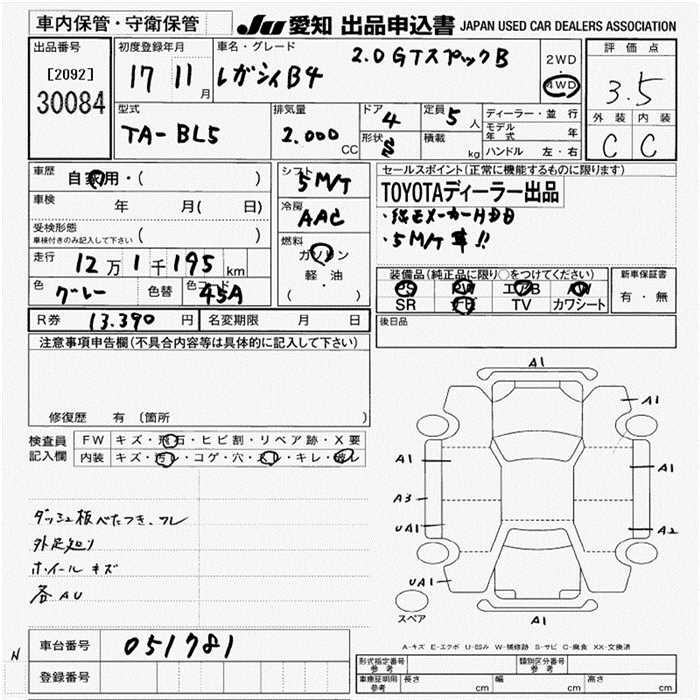 車内保管・守衛保管
JU 愛知 出品申込書 JAPAN USED CAR DEALERS ASSOCIATION
出品番号
[2092]
30084
初度登録年月
17 11月
車名・グレード
レガシィB4 2.0GTスペックB
2WD
・
4WD
評価点
3.5
外装 内装
C C
型式
TA-BL5
排気量
2.000 CC
ドア 4
形状 S
定員 5人
積載 kg
ディーラー・並行
モデル年式 年
ハンドル 左・右
車歴 自家用・( )
車検 年 月( 日)
受検形態
車検付きのみ記入して下さい ( )
走行 12万1千195km
色 グレー 色替 色コード 45A
シフト
5M/T
冷房
AAC
燃料
ガソリン
軽・油
( ・ )
セールスポイント(正常に機能するものに限ります)
TOYOTAディーラー出品
・純正メーカーHDD
・5M/T車!!
装備品(純正品に限り○をつけてください)
PS PW エアB AW
SR ナビ TV カワシート
新車保証書
有・無
後日品
R券 13.390円 名変期限 月 日
注意事項申告欄(不具合内容等は具体的に記入して下さい)
修復歴 有〔箇所 〕
検査員記入欄
FW キズ・飛石・ヒビ割・リペア跡・X要
内装 キズ・汚レ・コゲ・穴・スレ・キレ・破レ
ダッシュ板べたつき、フレ
ホイールキズ
各AU
A1
A1
A1
A1
A3
UA1
A2
UA1
A1
スペア
A-キズ E-エクボ U-凹み W-補修跡 S-サビ C-腐食 XX-交換済
N
車台番号 051781
登録番号
形式指定番号 参考
類別区分番号 参考
車庫証明用 参考 長さ cm 幅 cm 高さ cm